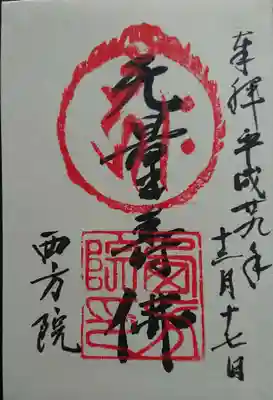 奉拝 平成廿九年
十二月十七日
无量寿佛
西方院